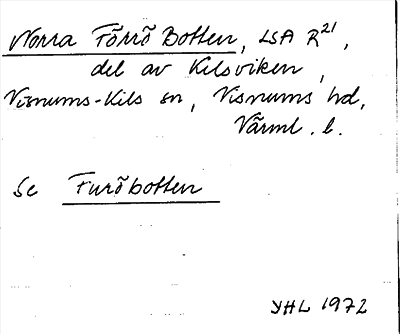 Norra Förrö Botten, LSA R²¹,
del av Kilsviken,
Visnums-Kils sn, Visnums hd,
Värml. l.
Se Furöbotten
YHL 1972